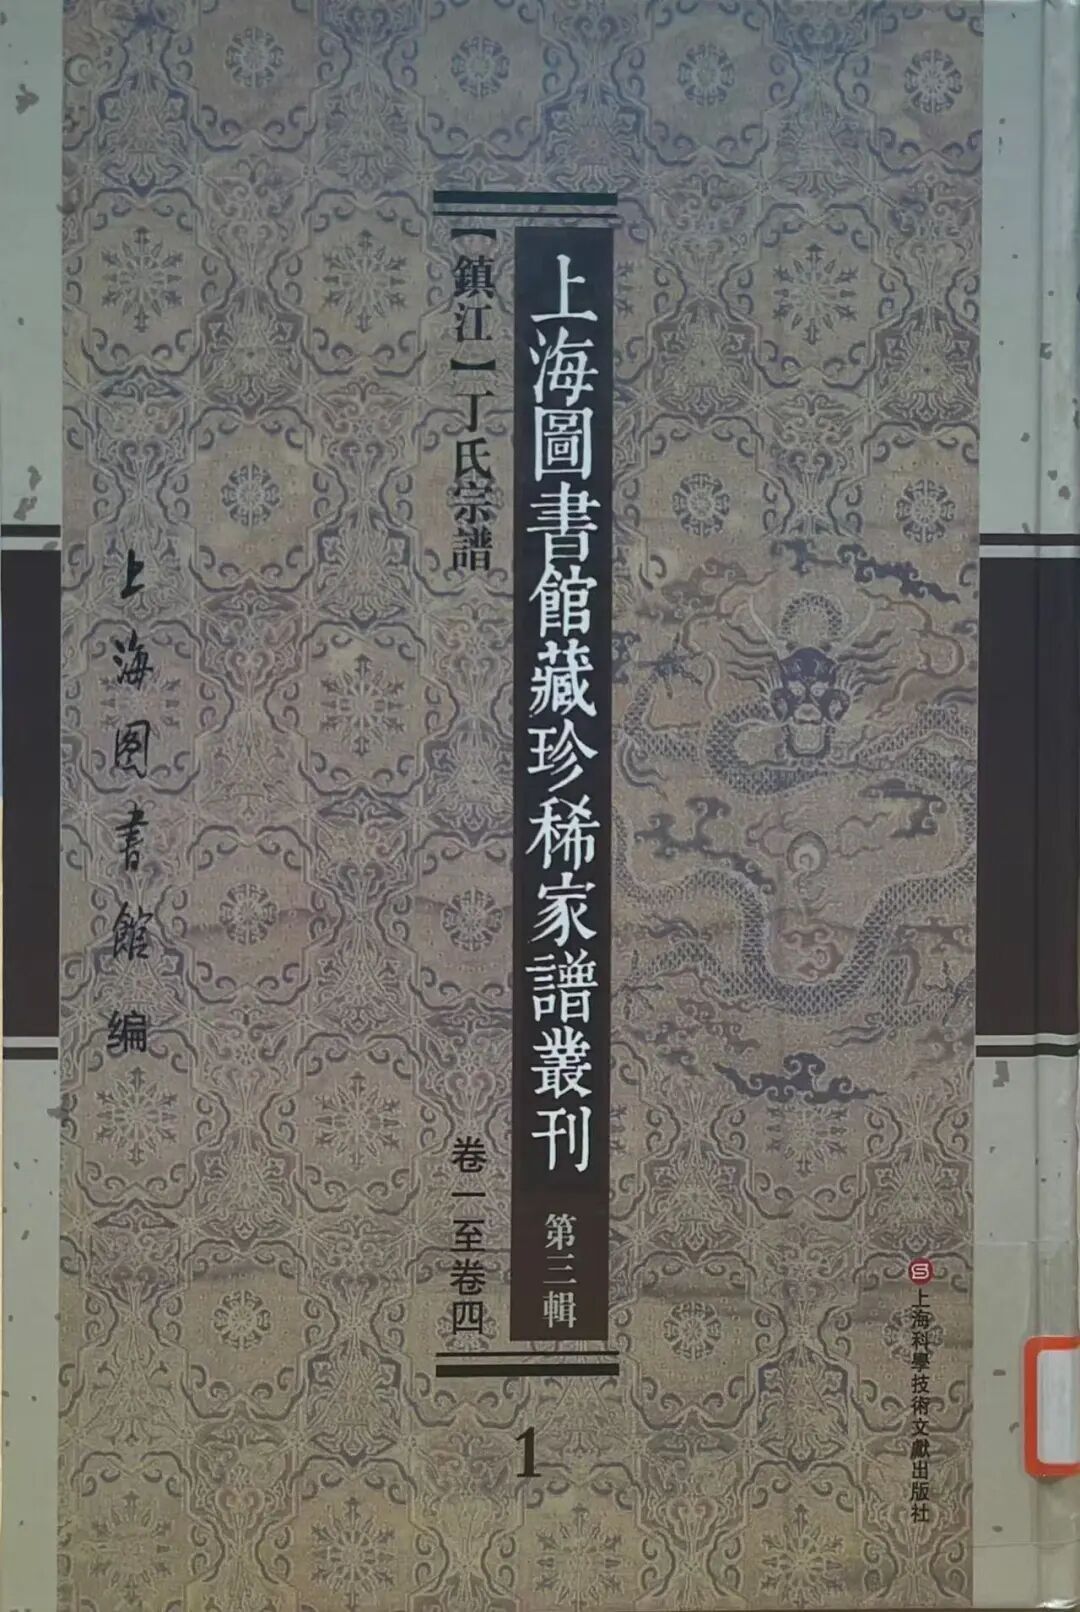 上海圖書館藏珍稀家譜叢刊 第三輯
【鎮江】丁氏宗譜 卷一至卷四
1
上海图書館编
上海科學技術文獻出版社